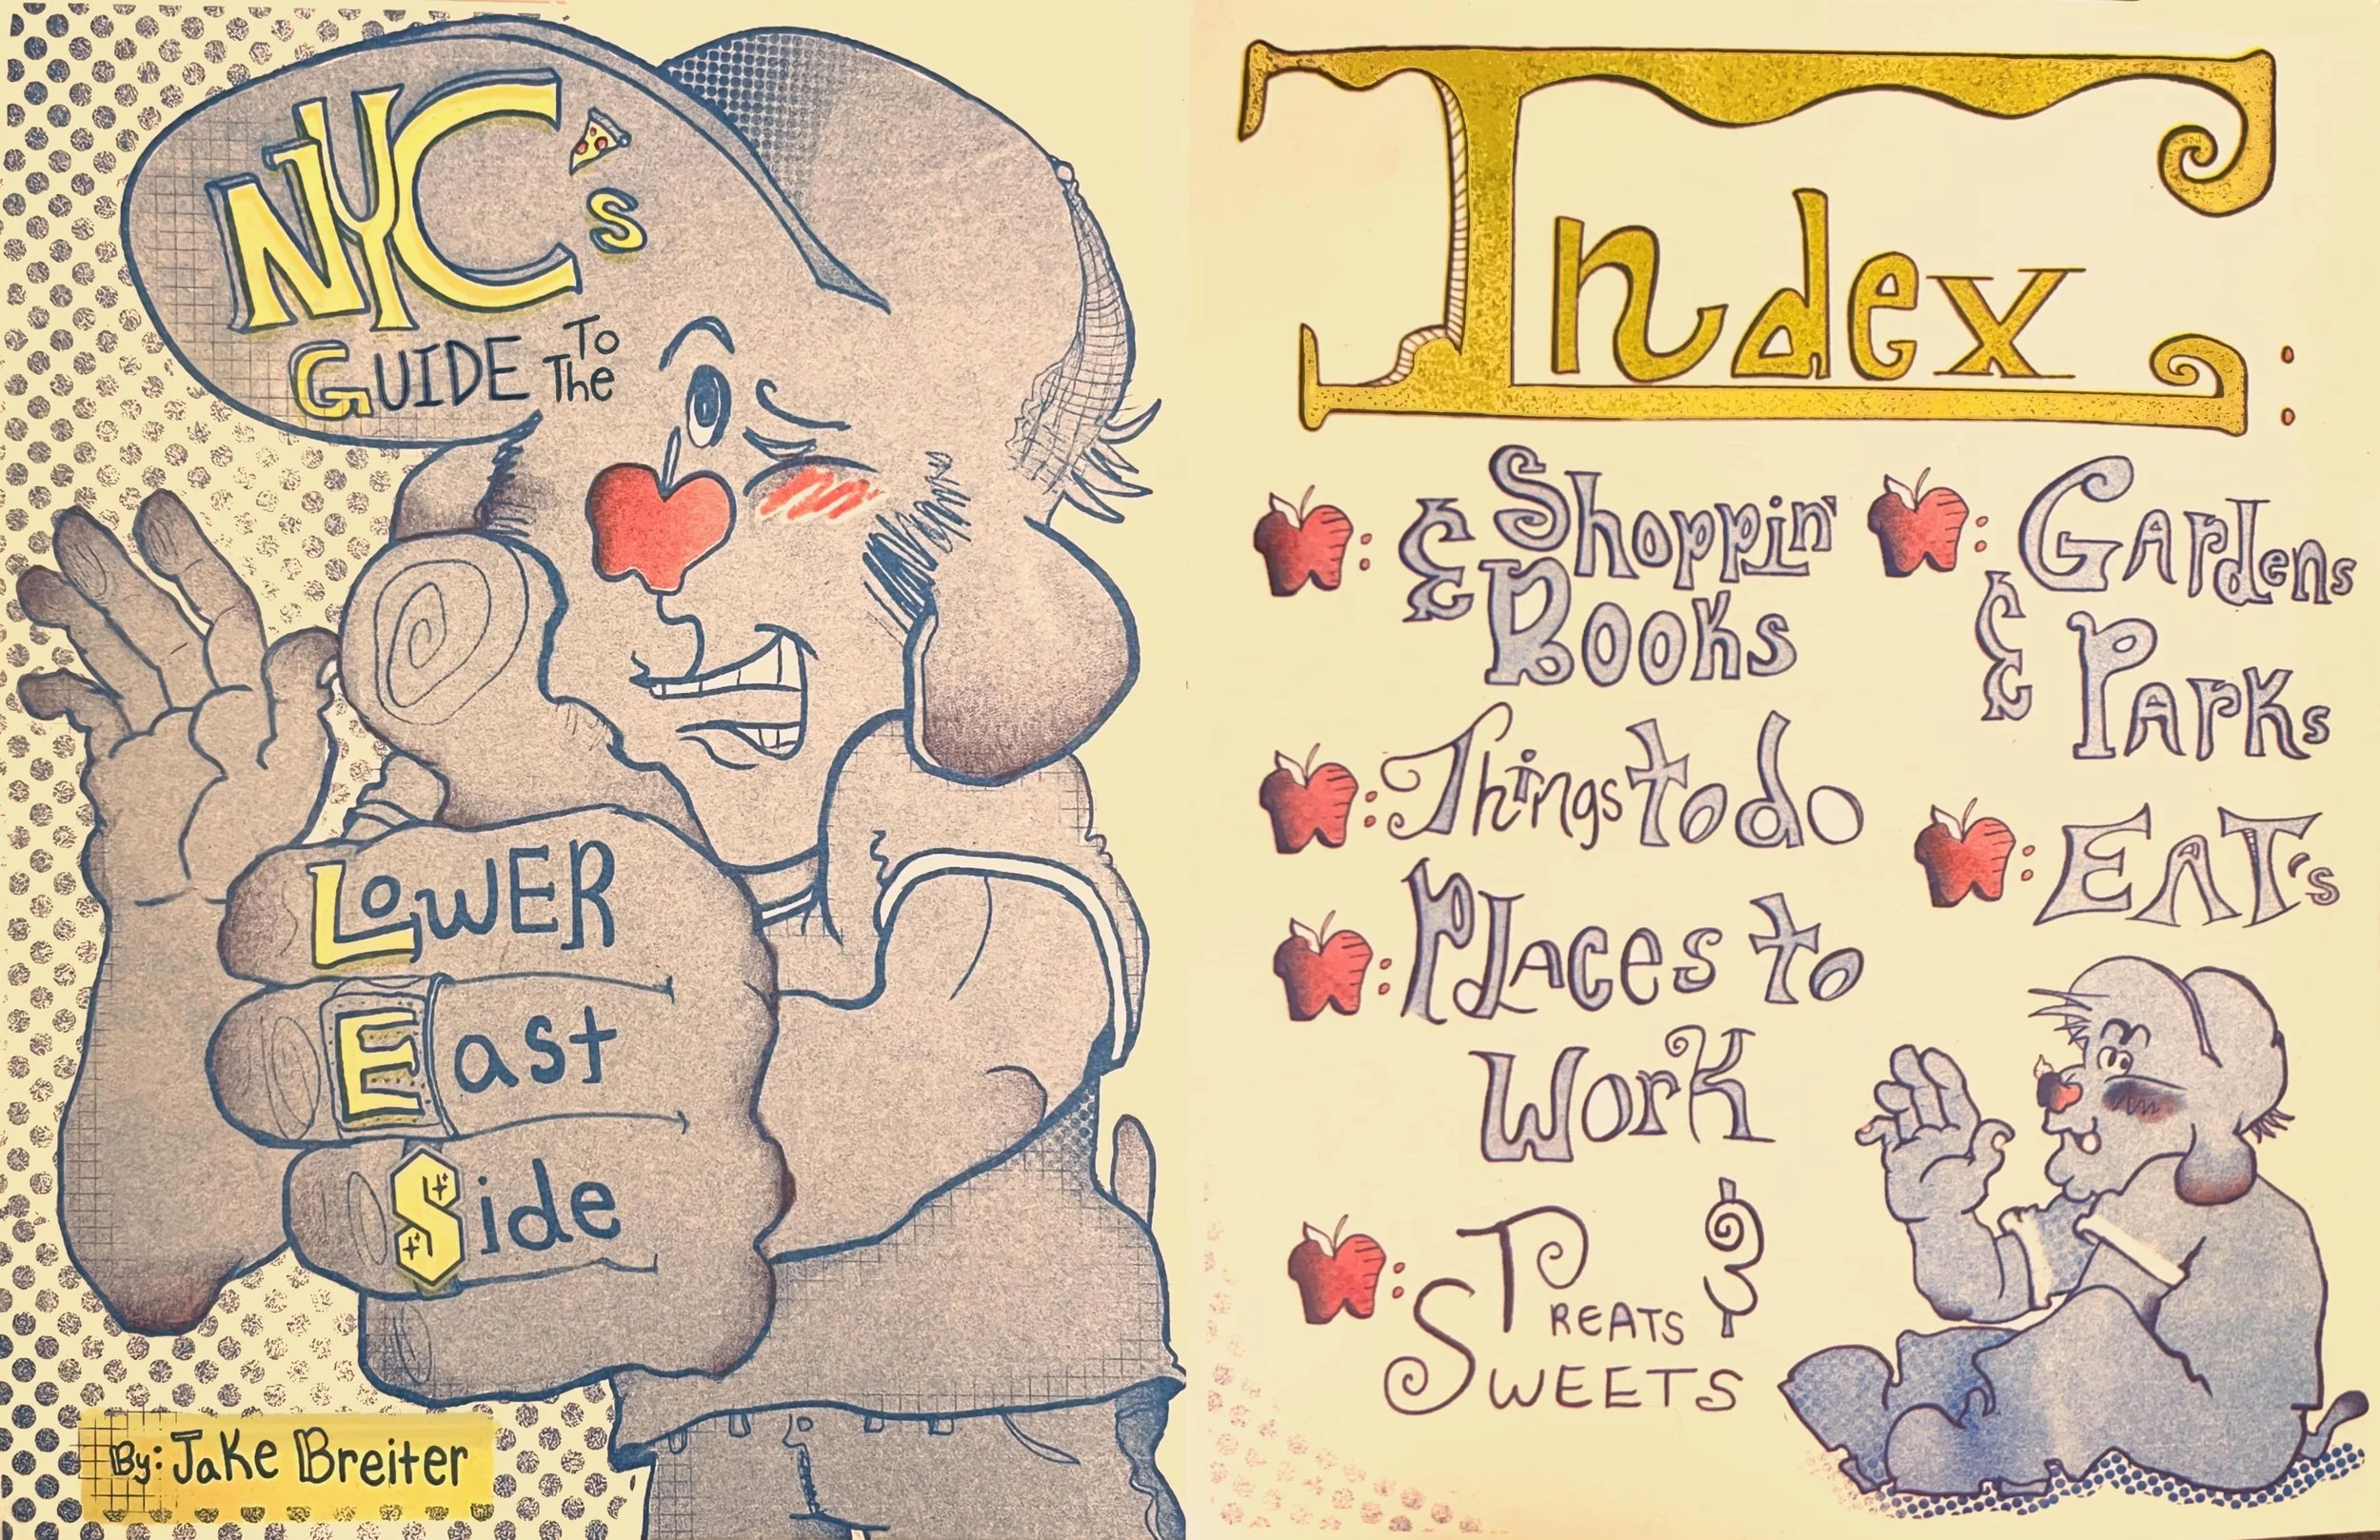 NYC's
GUIDE To The
LOWER
East
Side
By: Jake Breiter
Index:
: Shoppin'
& Books
: Things to do
: Places to
Work
: Treats &
Sweets
: Gardens
& Parks
: EAT's